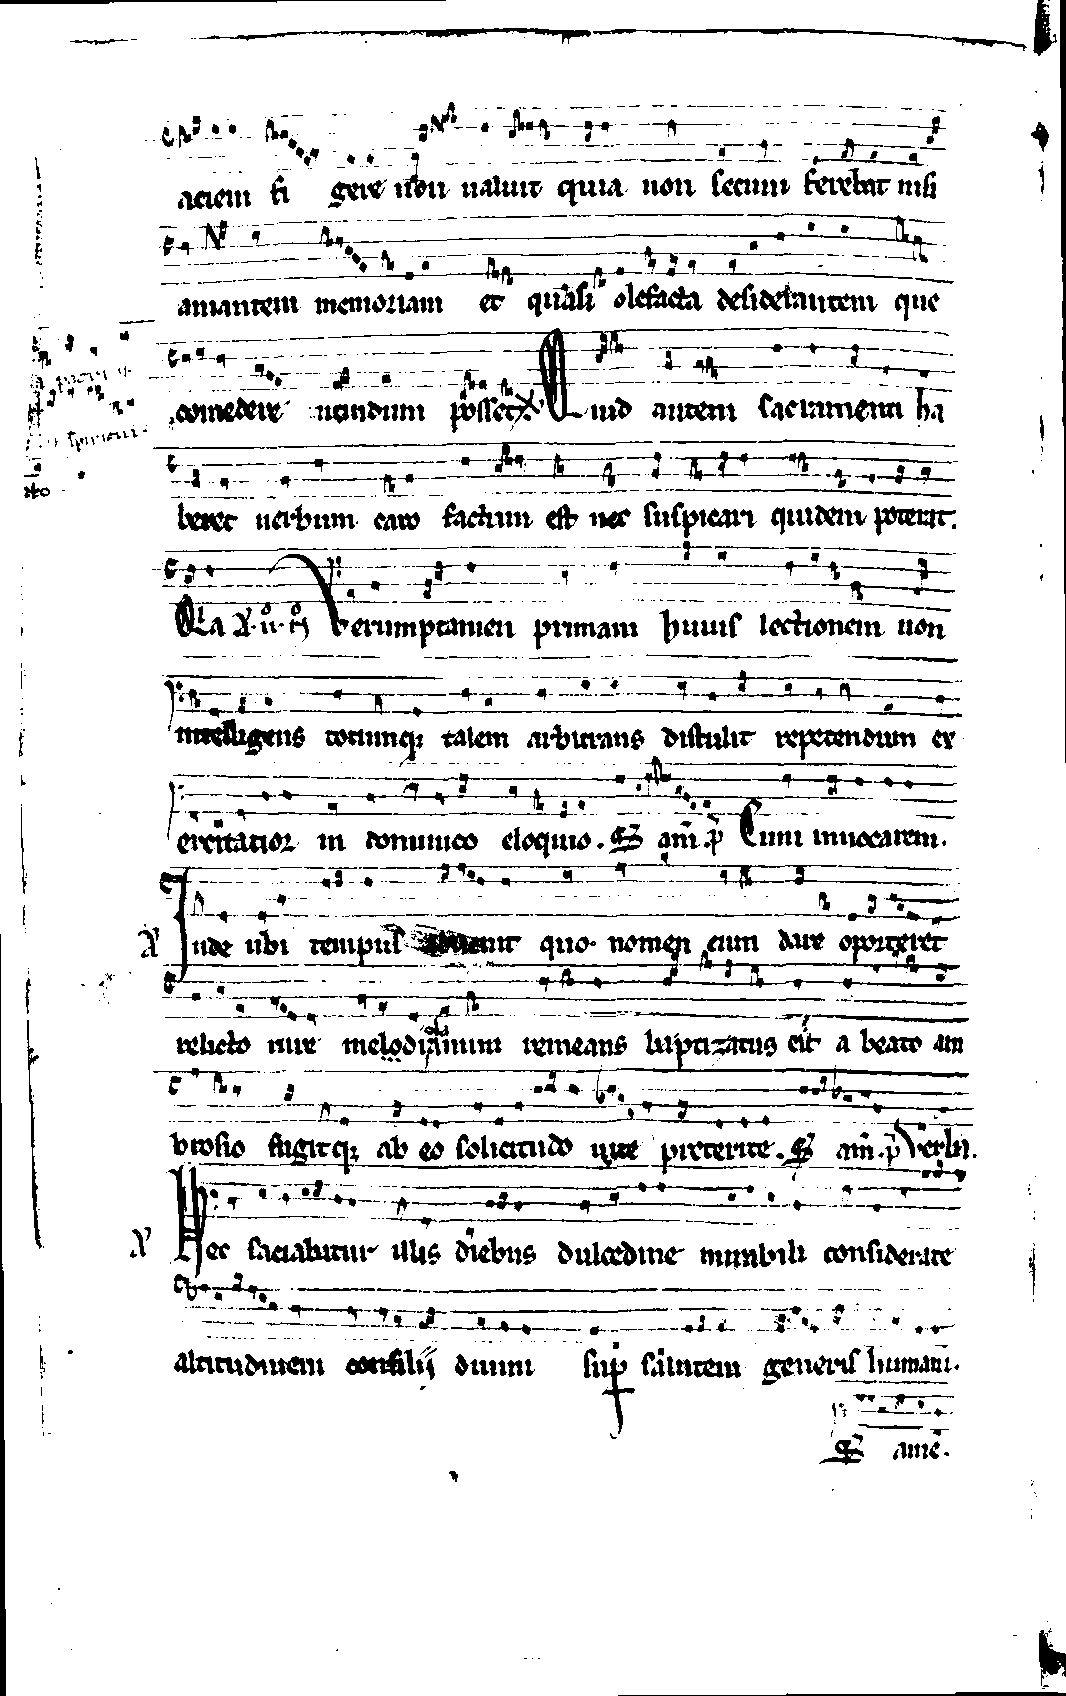 aciem fi gere non ualuit quia non secum ferebat nisi
amantem memoriam et quasi olefacta desiderantem que
comedere nondum posset. Quid autem sacramenti ha
beret uerbum caro factum est nec suspicari quidem poterat.
Verumptamen primam huius lectionem non
intelligens totumq; talem arbitrans distulit repetendum ex
ercitatior in dominico eloquio. am̄. p̄ Cum inuocarem.
Inde ubi tempus quo nomen eum dare oporteret
relicto rure remeans baptizatus est a beato am
brosio fugitq; ab eo solicitudo uite preterite. am̄. p̄
Nec saciabatur illis diebus dulcedine mirabili considerare
altitudinem consilij diuini sup salutem generis humani.
amē.